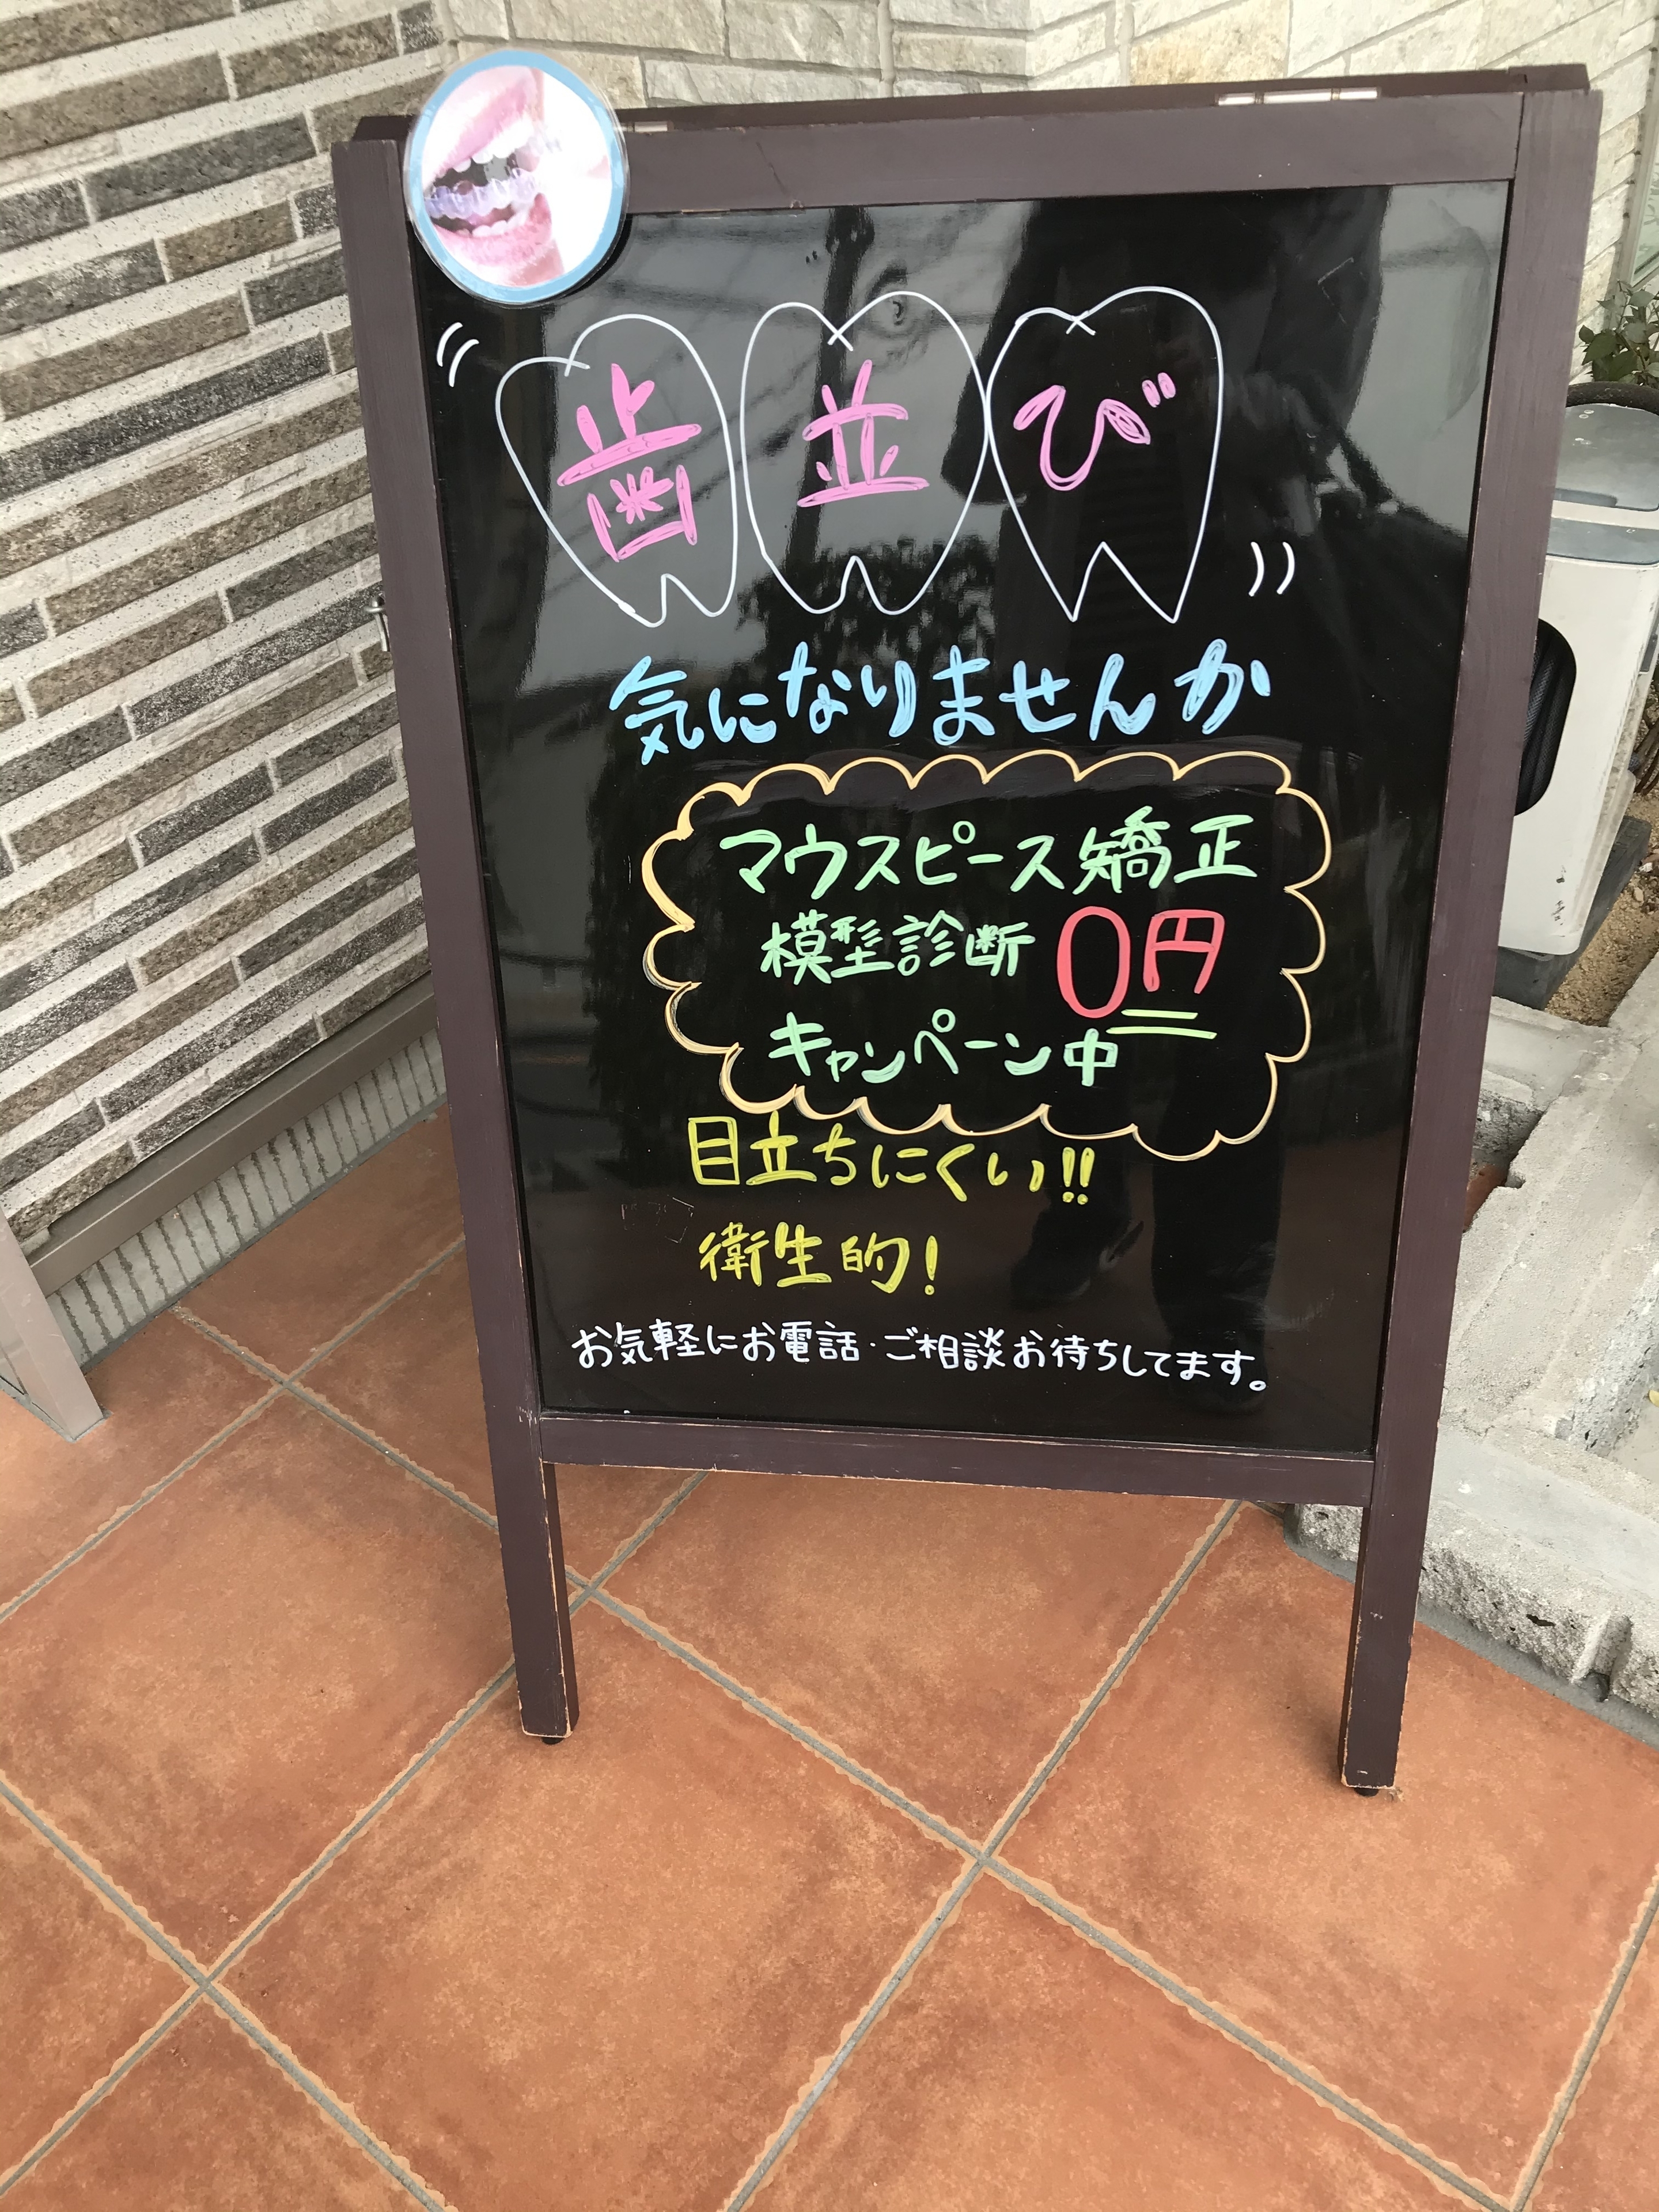 歯並び
気になりませんか
マウスピース矯正
模型診断 0円
キャンペーン中
目立ちにくい!!
衛生的!
お気軽にお電話・ご相談お待ちしてます。